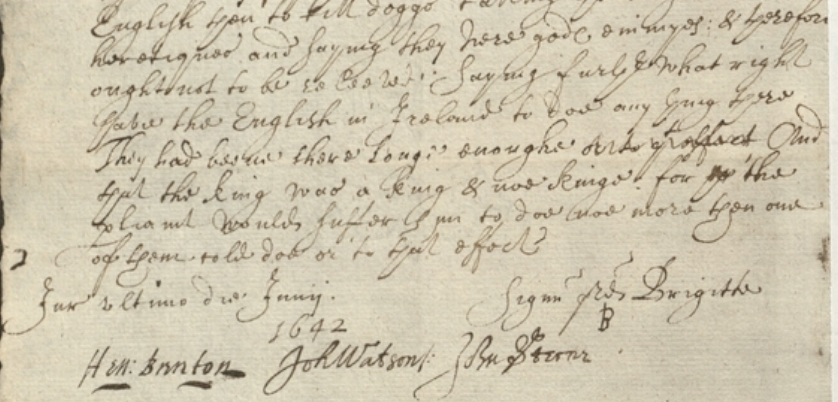 English then to kill doggs
heretiques and saying they were gods enimyes: & therefore
ought not to be releeved: saying further what right
have the English in Ireland to doe any thing there
They had beene there longe enoughe or to effect And
that the King was a King & noe Kinge for the
pliamt would suffer him to doe noe more then one
of them cold doe or to that effect
Jur vltimo die Junij.
1642
signu Brigitte
B
Hen: Brereton John Watson: